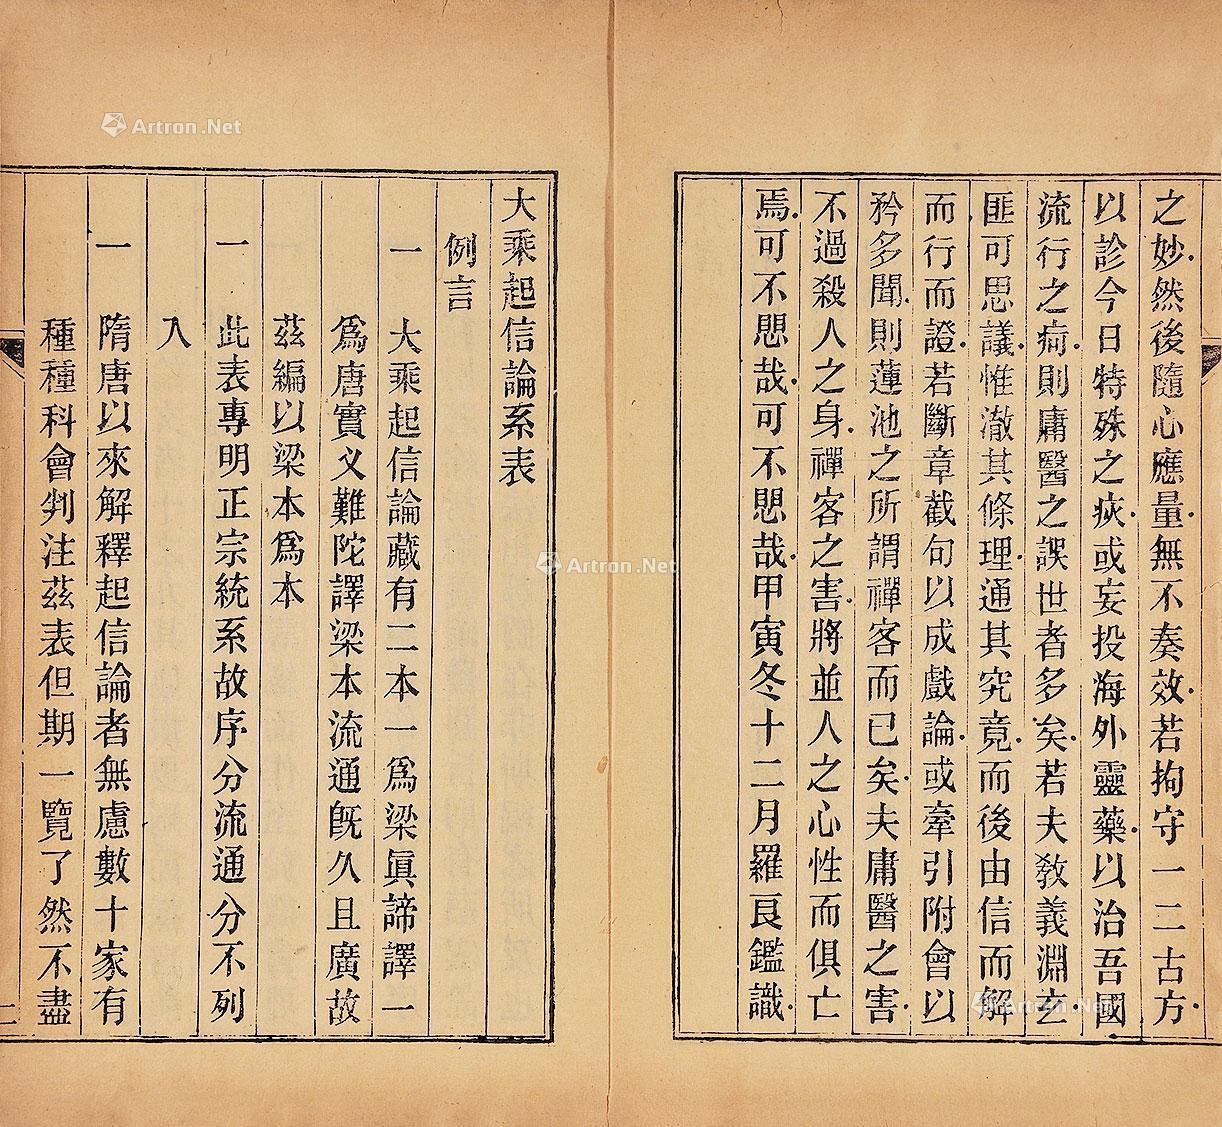 之妙然後隨心應量無不奏效若拘守一二古方
以診今日特殊之疾或妄投海外靈藥以治吾國
流行之病則庸醫之誤世者多矣若夫教義淵玄
匪可思議惟澈其條理通其究竟而後由信而解
而行而證若斷章截句以成戲論或牽引附會以
矜多聞則蓮池之所謂禪客而已矣夫庸醫之害
不過殺人之身禪客之害將並人之心性而俱亡
焉可不愳哉可不愳哉甲寅冬十二月羅艮鑑識
大乘起信論系表
例言
一 大乘起信論藏有二本一爲梁眞諦譯一
爲唐實叉難陀譯梁本流通旣久且廣故
茲編以梁本爲本
一 此表專明正宗統系故序分流通分不列
入
一 隋唐以來解釋起信論者無慮數十家有
種種科會判注茲表但期一覽了然不盡
二
Artron.Net
Artron.Net
Artron.Net